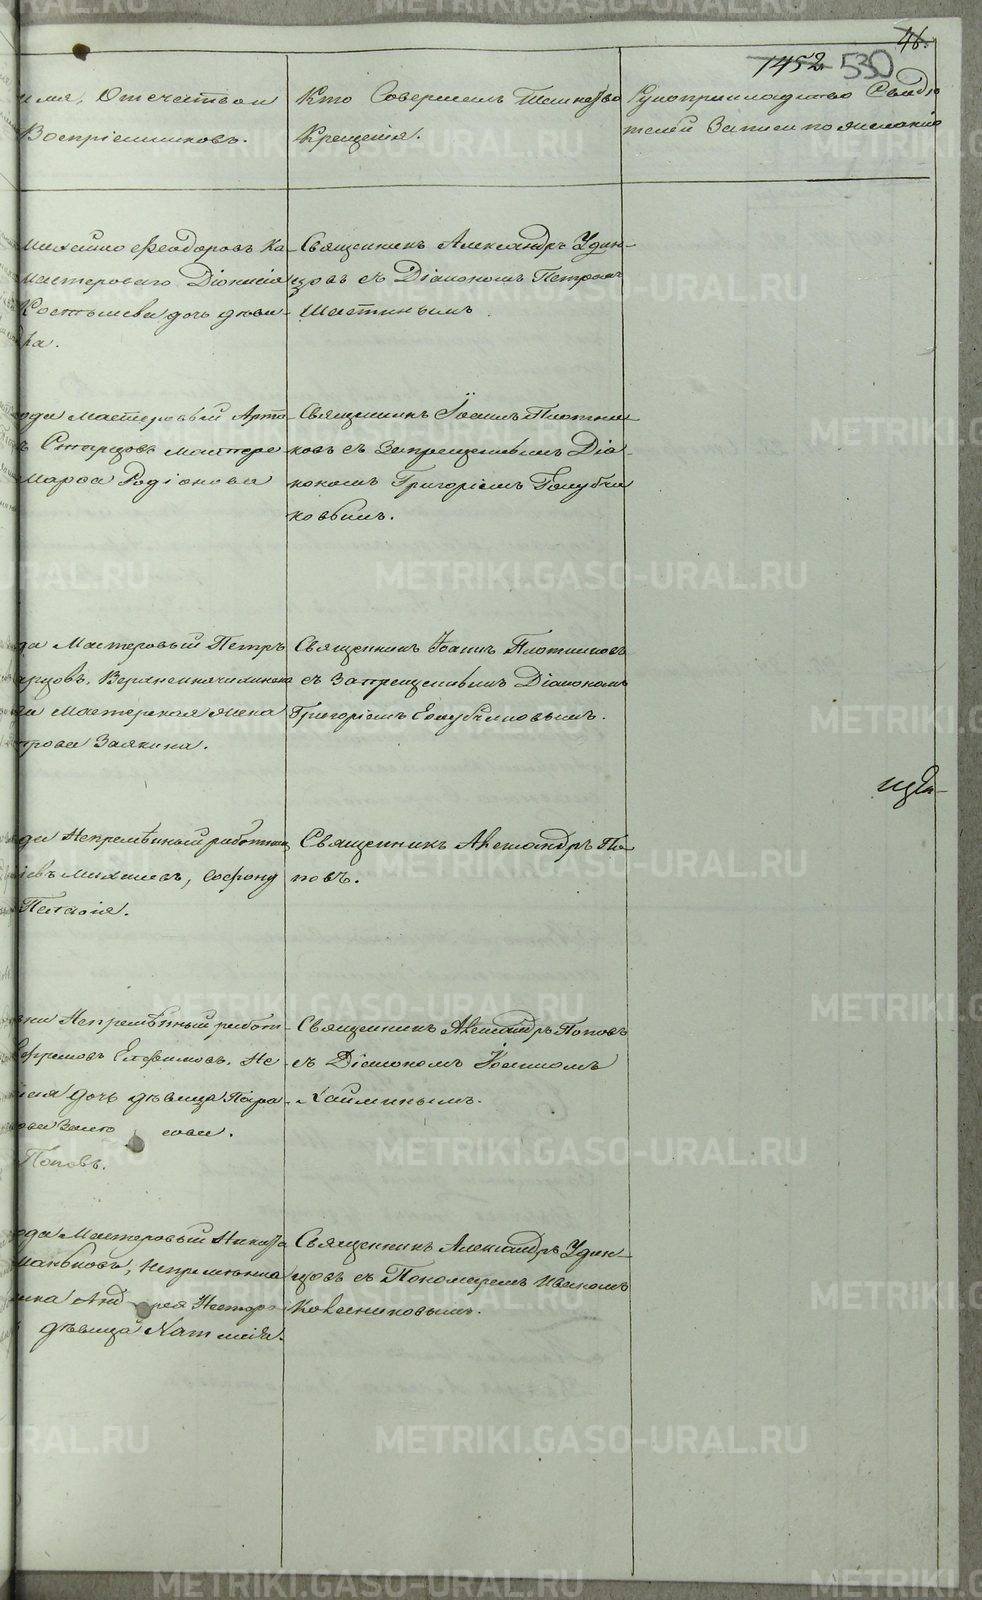 46.
1452 530
имя, Отечество и
Восприемниковъ.
Кто Совершалъ Таинство
Крещенія.
Рукоприкладство Свидѣ
телей Записи по желанію
Михайло Феодоровъ Ка-
мастероваго Діонисія
Костылева дочь дѣви
Священникъ Александръ Удин-
цовъ съ Діакономъ Петромъ
Шастинымъ
ода мастеровый Арте
Старцовъ мастеро
Марѳа Родіонова
Священникъ Іоаннъ Плотни
ковъ съ Запрещеннымъ Діа-
кономъ Григоріемъ Голубчи
ковымъ.
да Мастеровый Петръ
арцовъ, Верхнейвинска
Мастерская жена
трова Заякина.
Священникъ Іоаннъ Плотниковъ
съ Запрещеннымъ Діакономъ
Григоріемъ Голубчиковымъ.
ида-
да Непремѣнный работни
Пелагія.
Священникъ Александръ По
повъ.
Непремѣнный работ-
Ефремовъ Елфимовъ, Не
дочь дѣвица Пара
Поповъ.
Священникъ Александръ Поповъ
съ Діакономъ Іоанномъ
Хайминымъ.
ода Мастеровый Никита
маньковъ, Непремѣнна
ика Андрея Нестеро
дѣвица Наталія.
Священникъ Александръ Удин-
цовъ съ Пономаремъ Иваномъ
Колесниковымъ.
METRIKI.GASO-URAL.RU